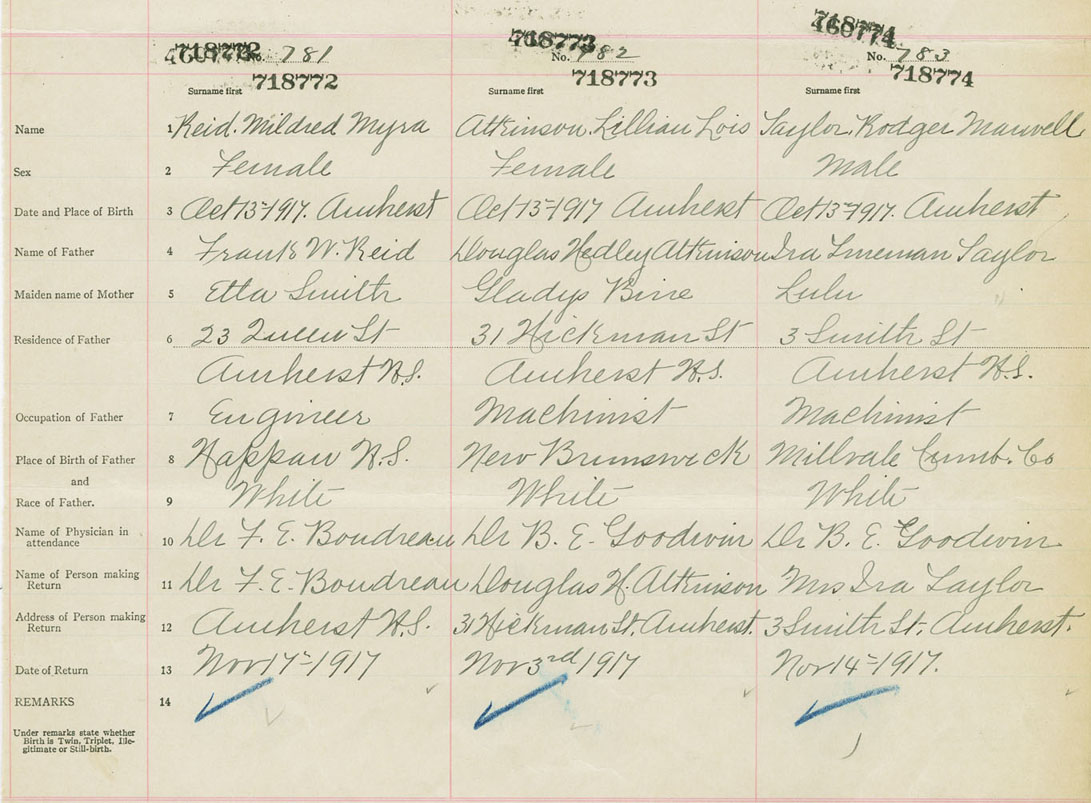 718772 718773 718774
No. 781 No. 782 No. 783
718772 718773 718774
Surname first Surname first Surname first
Name 1 Reid. Mildred Myra Atkinson. Lillian Lois Taylor. Rodger Maxwell
Sex 2 Female Female Male
Date and Place of Birth 3 Oct 13=1917. Amherst Oct 13=1917 Amherst Oct 13=1917. Amherst
Name of Father 4 Frank W. Reid Douglas Hedley Atkinson Ira Taylor
Maiden name of Mother 5 Etta Smith Gladys Lulu
Residence of Father 6 23 Queen St 31 Hickman St 3 Smith St
Amherst N.S. Amherst N.S. Amherst N.S.
Occupation of Father 7 Engineer Machinist Machinist
Place of Birth of Father 8 Nappan N.S. New Brunswick Millvale Cumb. Co
and
Race of Father. 9 White White White
Name of Physician in
attendance 10 Dr F. E. Boudreau Dr B. E. Goodwin Dr B. E. Goodwin
Name of Person making
Return 11 Dr F. E. Boudreau Douglas H. Atkinson Mrs Ira Taylor
Address of Person making
Return 12 Amherst N.S. 31 Hickman St. Amherst. 3 Smith St. Amherst.
Date of Return 13 Nov 17=1917 Nov 3rd 1917 Nov 14=1917.
REMARKS 14
Under remarks state whether
Birth is Twin, Triplet, Ille-
gitimate or Still-birth.